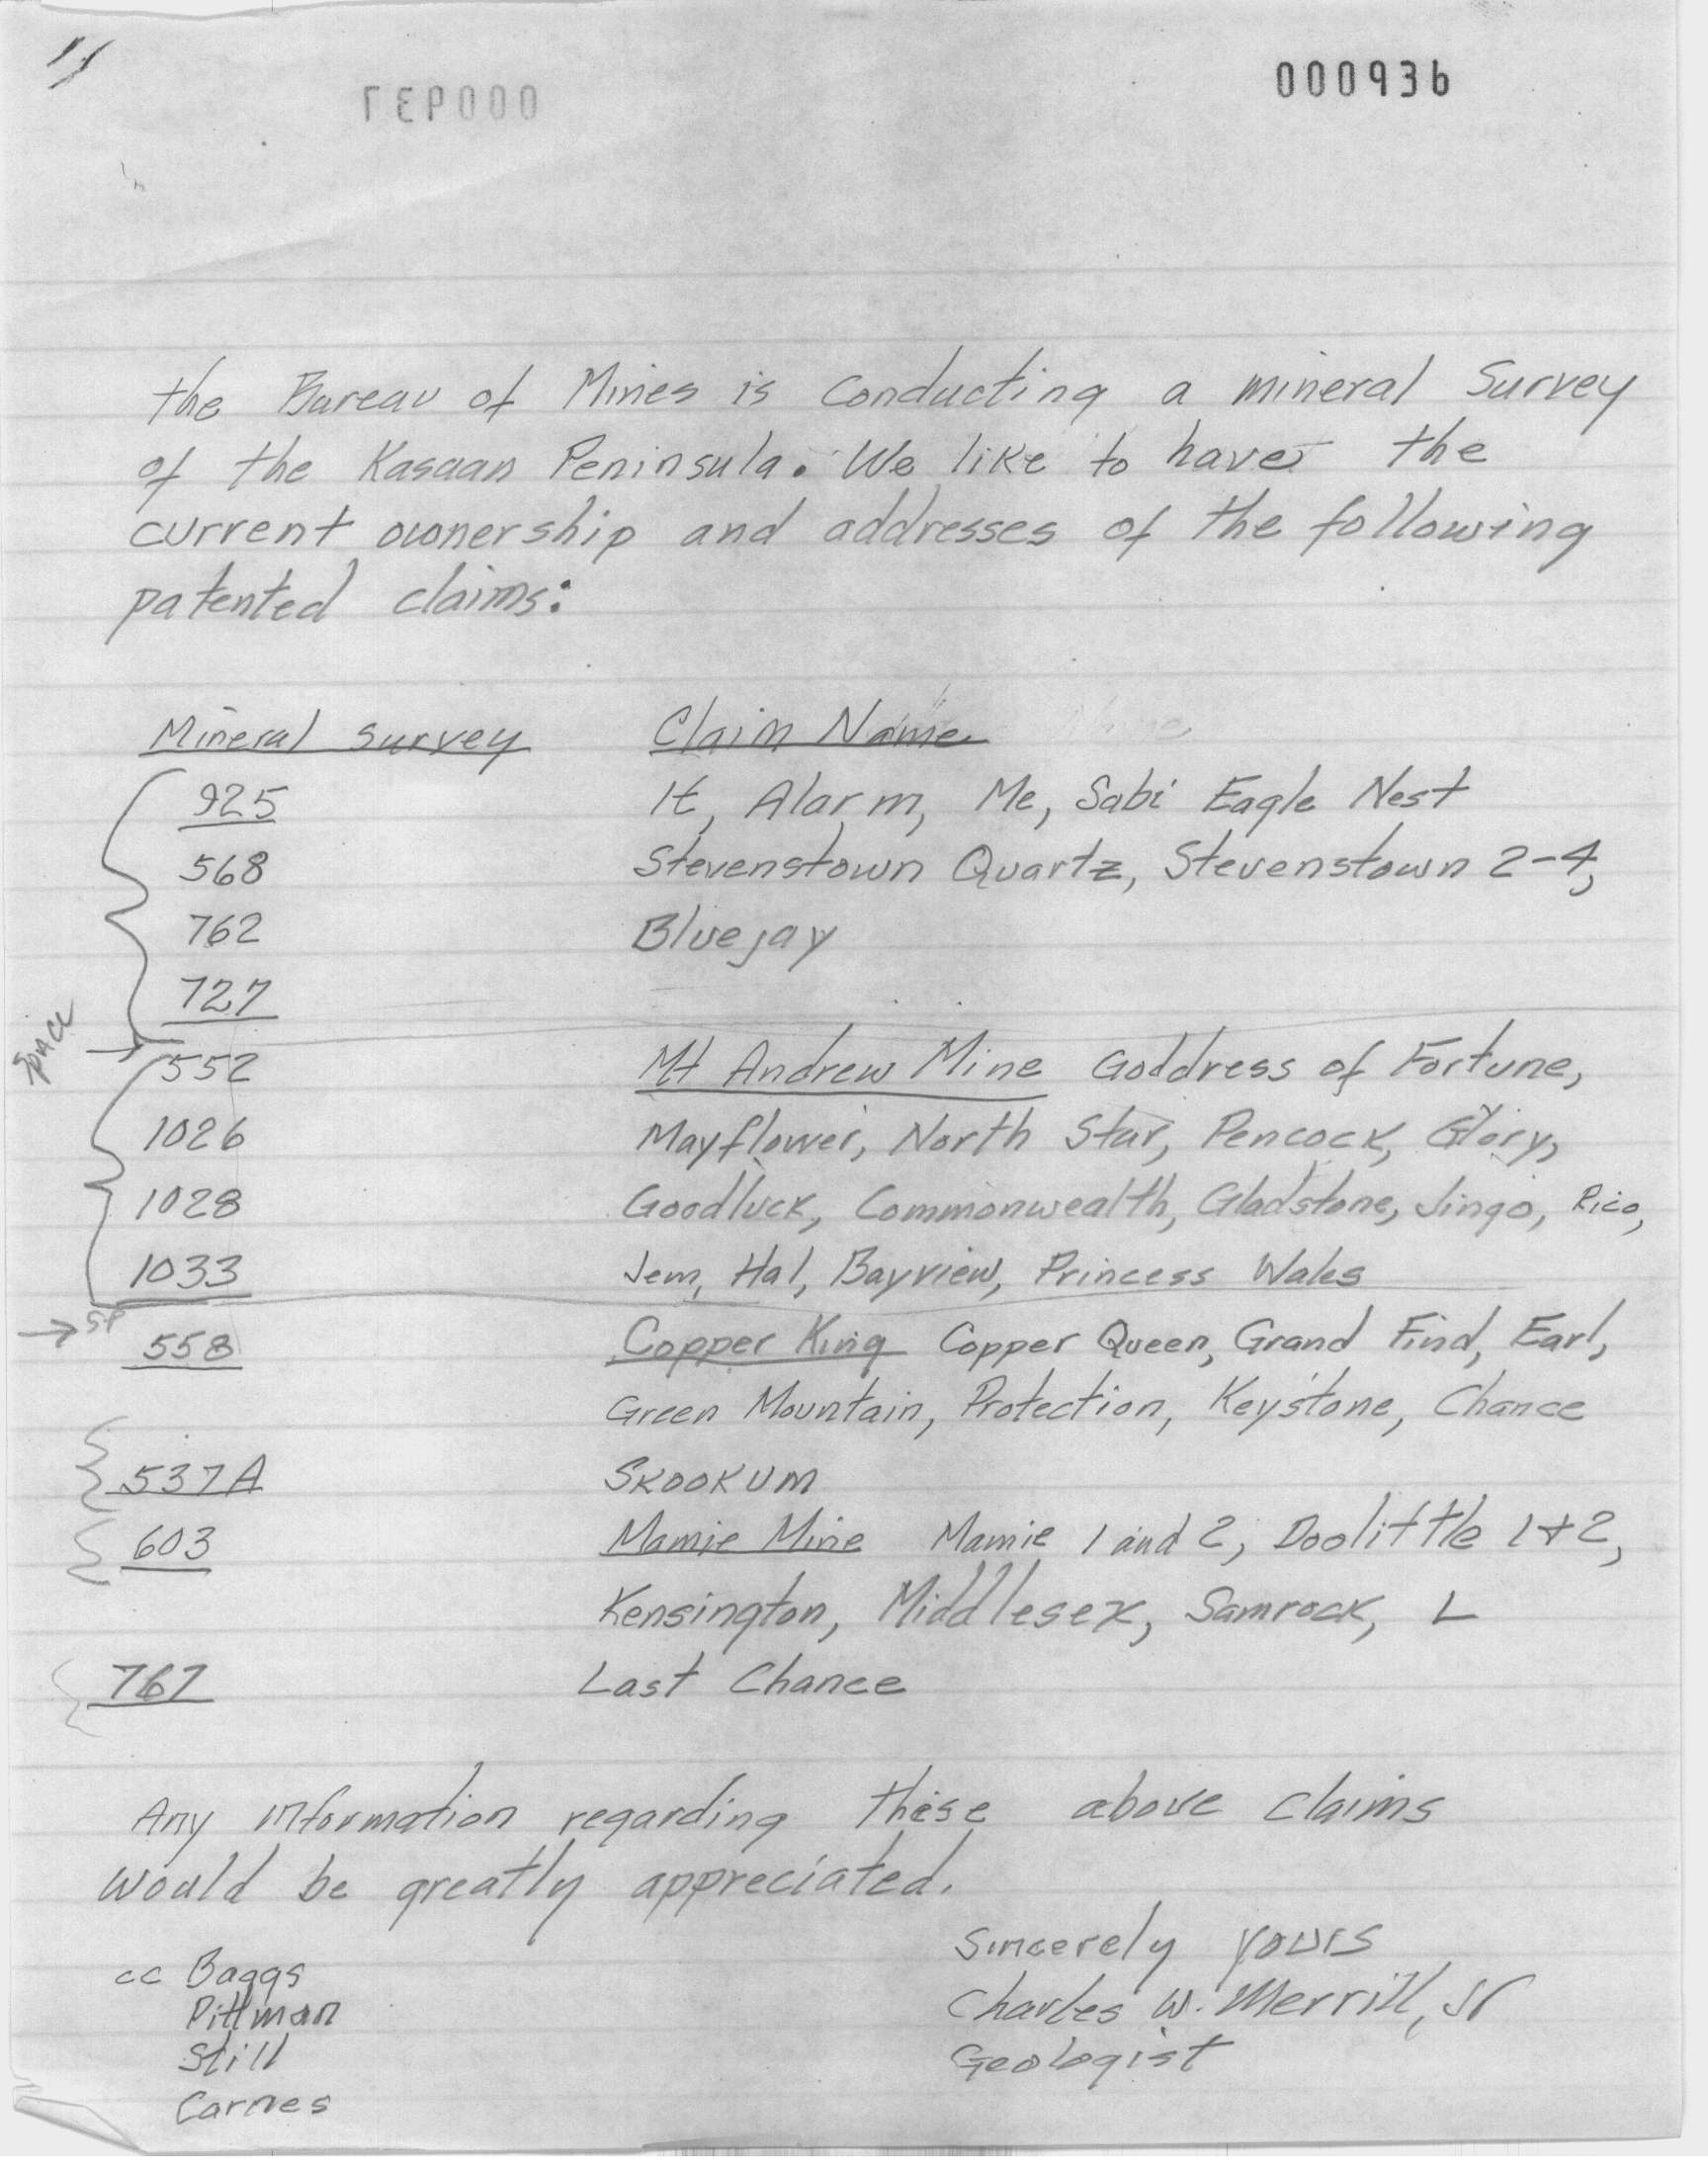 000936
the Bureau of Mines is conducting a mineral Survey
of the Kasaan Peninsula. We like to have the
current ownership and addresses of the following
patented claims:
Mineral Survey Claim Name
925 It, Alarm, Me, Sabi Eagle Nest
568 Stevenstown Quartz, Stevenstown 2-4,
762 Bluejay
727
space
552 Mt Andrew Mine Goddress of Fortune,
1026 Mayflower, North Star, Pencock, Glory,
1028 Goodluck, Commonwealth, Gladstone, Jingo, Rico,
1033 Jem, Hal, Bayview, Princess Wales
→ sp
558 Copper King Copper Queen, Grand Find, Earl,
Green Mountain, Protection, Keystone, Chance
537A Skookum
603 Mamie Mine Mamie 1 and 2, Doolittle 1+2,
Kensington, Middlesex, Samrock, L
767 Last Chance
Any information regarding these above claims
would be greatly appreciated.
Sincerely yours
cc Baggs Charles W. Merrill, Jr
Pittman Geologist
Still
Carnes